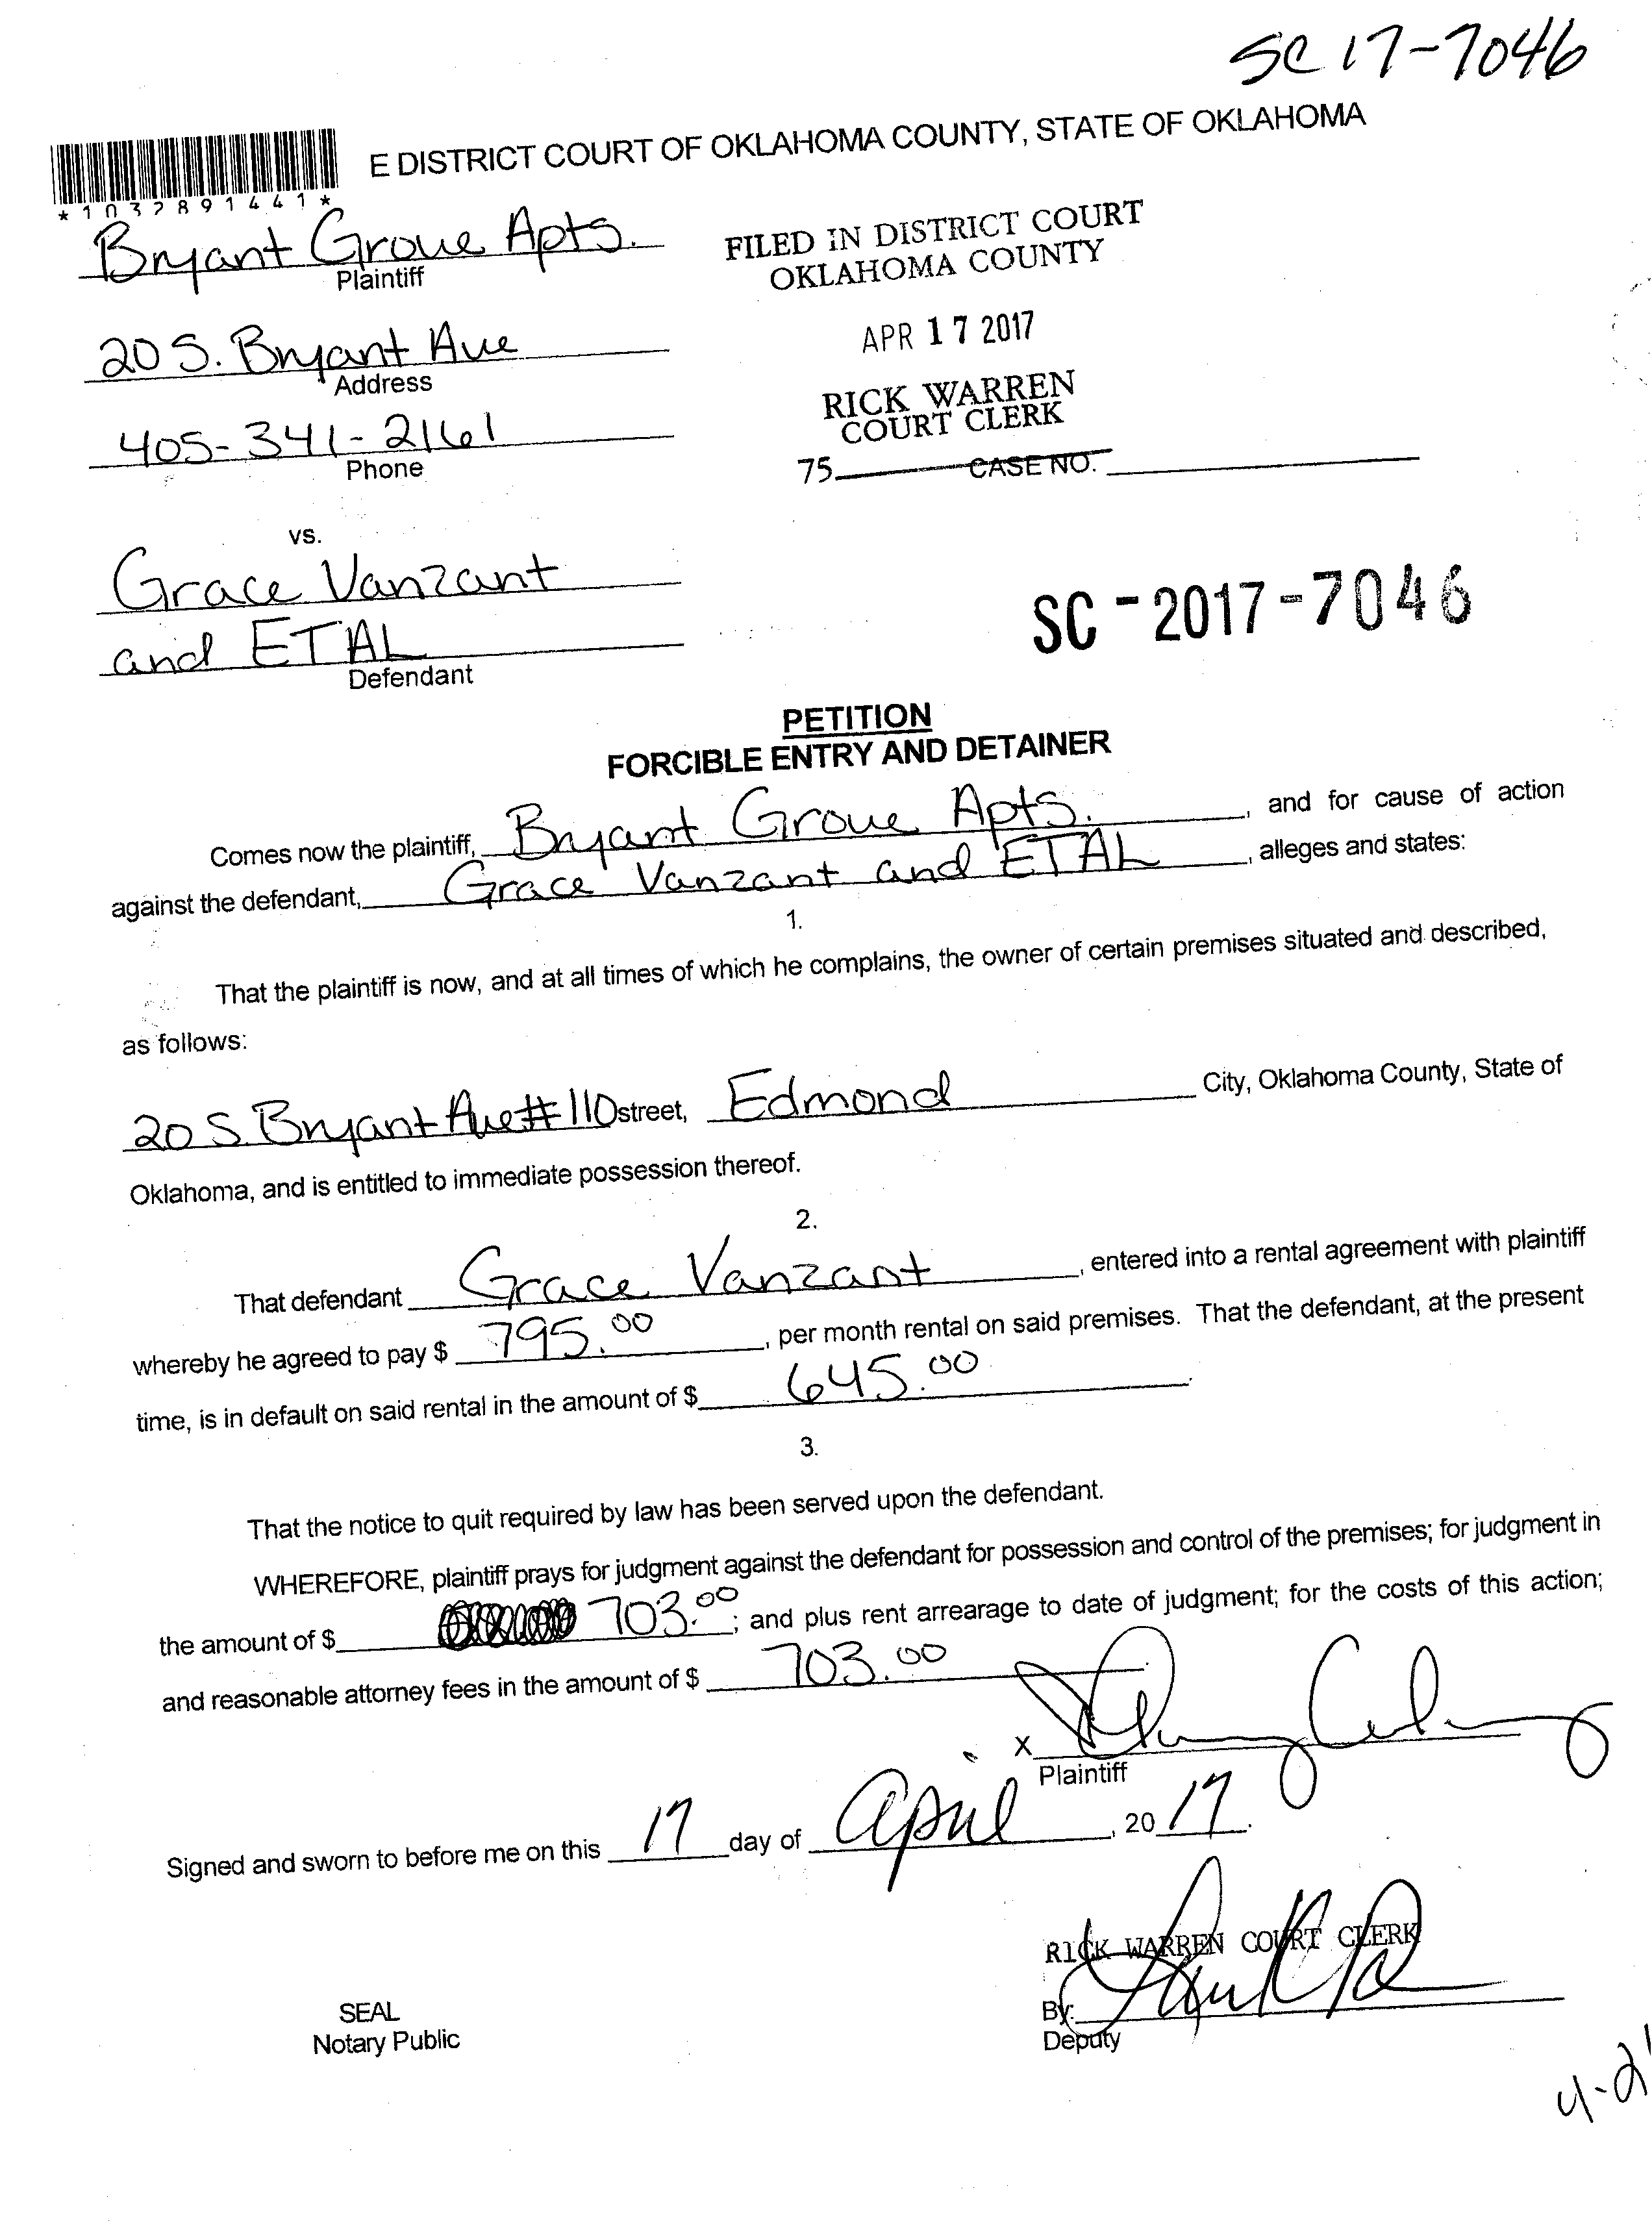 SC 17-7046
E DISTRICT COURT OF OKLAHOMA COUNTY, STATE OF OKLAHOMA
*1032891441*
Bryant Grove Apts.
Plaintiff
FILED IN DISTRICT COURT
OKLAHOMA COUNTY
20 S. Bryant Ave
Address
APR 17 2017
405-341-2161
Phone
RICK WARREN
COURT CLERK
75 CASE NO.
vs.
Grace Vanzant
and ETAL
Defendant
SC-2017-7046
PETITION
FORCIBLE ENTRY AND DETAINER
Comes now the plaintiff, Bryant Grove Apts., and for cause of action
against the defendant, Grace Vanzant and ETAL, alleges and states:
1.
That the plaintiff is now, and at all times of which he complains, the owner of certain premises situated and described,
as follows:
20 S. Bryant Ave #110 street, Edmond City, Oklahoma County, State of
Oklahoma, and is entitled to immediate possession thereof.
2.
That defendant Grace Vanzant, entered into a rental agreement with plaintiff
whereby he agreed to pay $ 795.00, per month rental on said premises. That the defendant, at the present
time, is in default on said rental in the amount of $ 645.00.
3.
That the notice to quit required by law has been served upon the defendant.
WHEREFORE, plaintiff prays for judgment against the defendant for possession and control of the premises; for judgment in
the amount of $ 703.00; and plus rent arrearage to date of judgment; for the costs of this action;
and reasonable attorney fees in the amount of $ 703.00
X
Plaintiff
Signed and sworn to before me on this 17 day of April, 20 17.
RICK WARREN COURT CLERK
SEAL
Notary Public
By:
Deputy